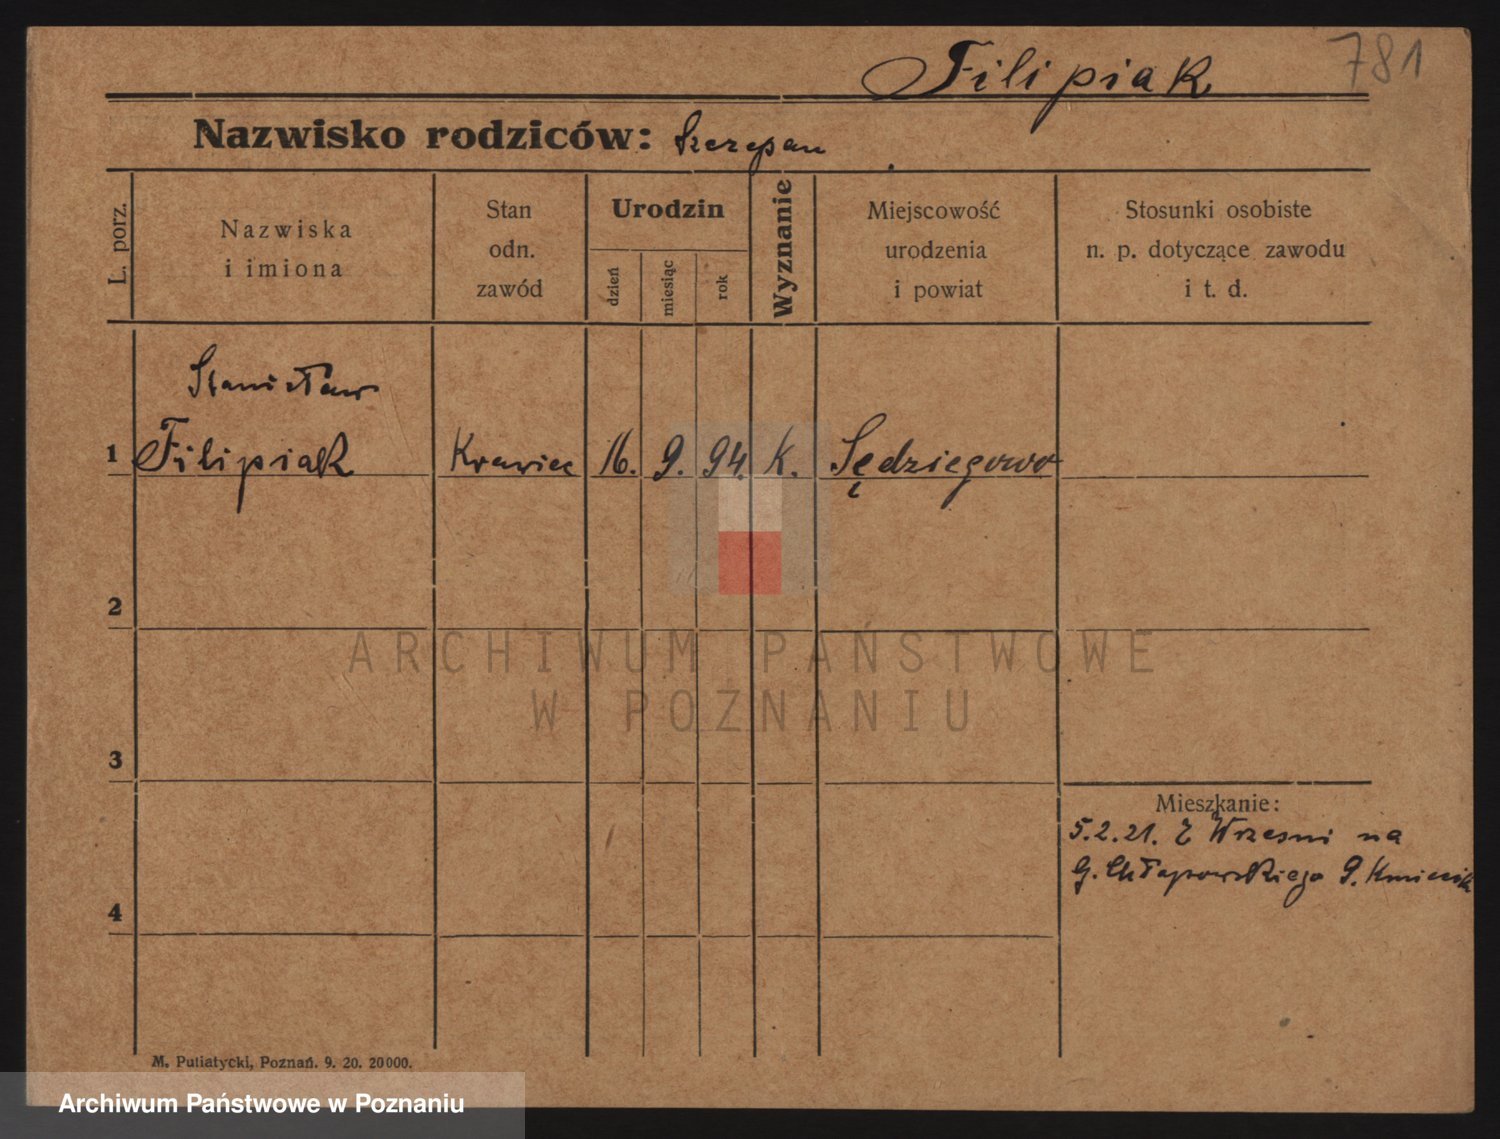 Filipiak 781
Nazwisko rodziców: Szczepan
L. porz.
Nazwiska
i imiona
Stan
odn.
zawód
Urodzin
dzień
miesiąc
rok
Wyznanie
Miejscowość
urodzenia
i powiat
Stosunki osobiste
n. p. dotyczące zawodu
i t. d.
Stanisław
1 Filipiak Krawiec 16. 9. 94. K. Sędziegowo
2
ARCHIWUM PAŃSTWOWE
W POZNANIU
3
Mieszkanie:
5.2.21. Z Wrzesni na
G. Chłapowskiego 9. Kmiecik
4
M. Putiatycki, Poznań. 9. 20. 20000.
Archiwum Państwowe w Poznaniu